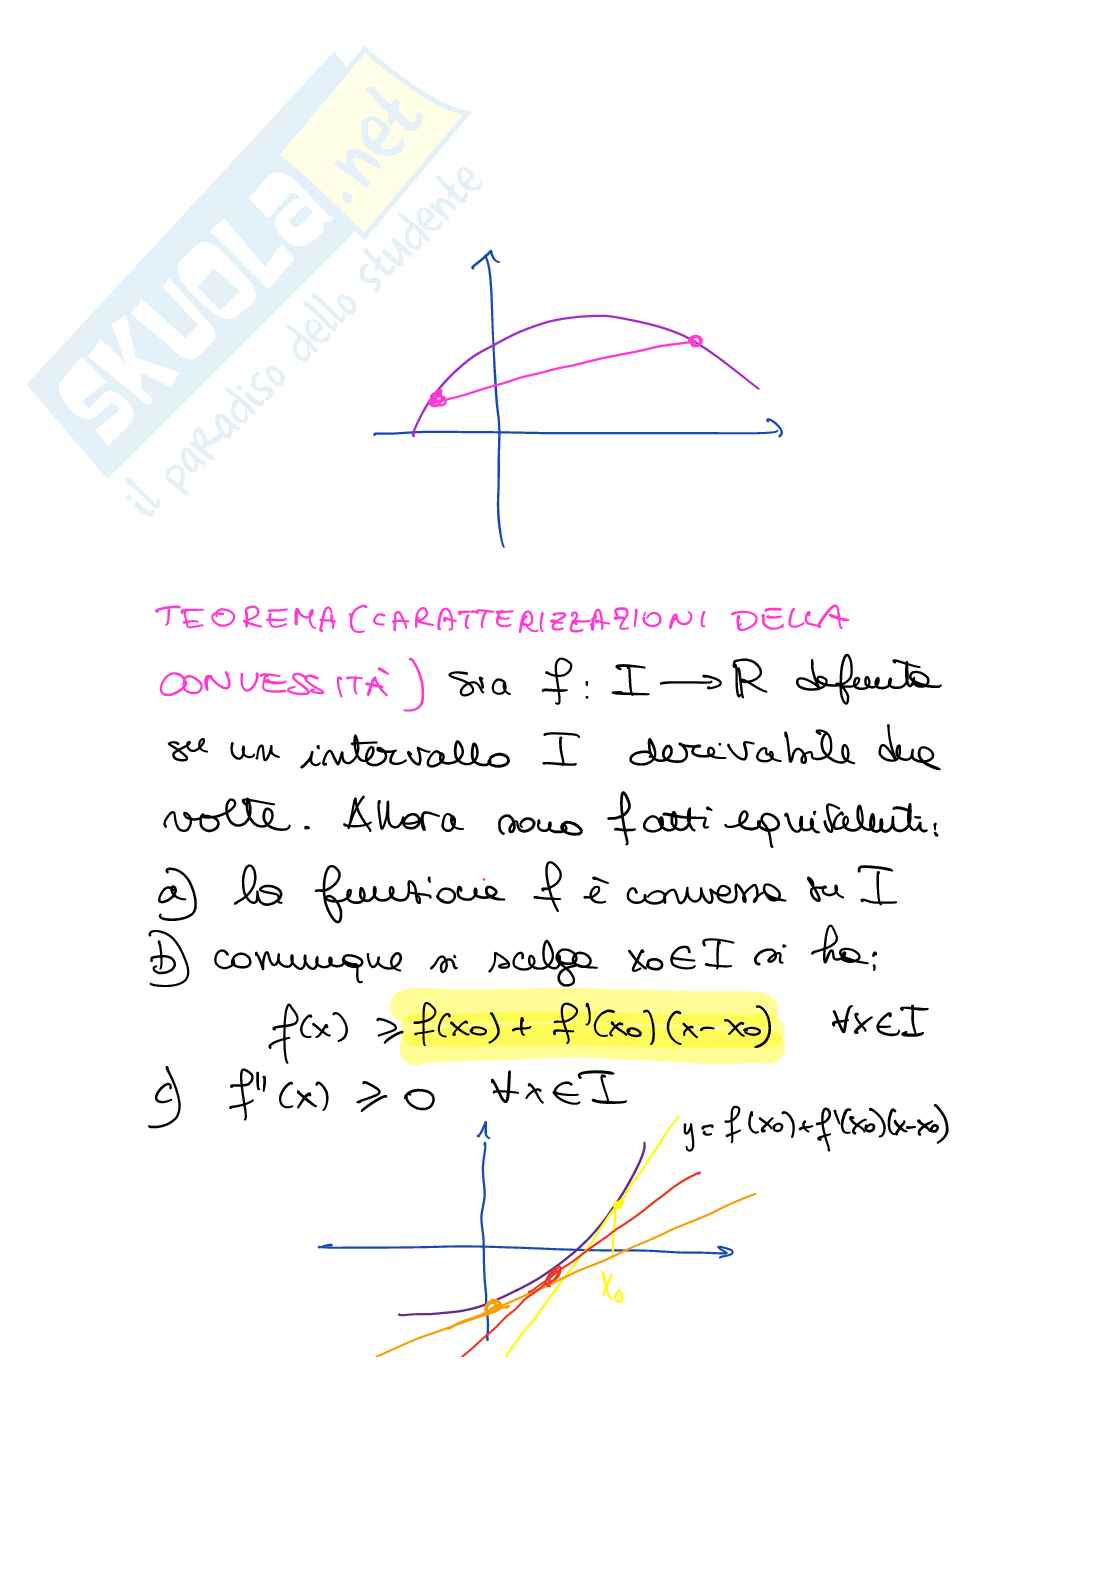 SKUOLA.net
il paradiso dello studente
TEOREMA (CARATTERIZZAZIONI DELLA
CONVESSITÀ) sia f: I → R definita
su un intervallo I derivabile due
volte. Allora sono fatti equivalenti:
a) la funzione f è convessa su I
b) comunque si scelga x₀∈I si ha:
f(x) ⩾ f(x₀) + f'(x₀)(x-x₀) ∀x∈I
c) f''(x) ⩾ 0 ∀x∈I
y = f(x₀)+f'(x₀)(x-x₀)
x₀